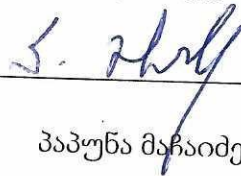 პაპუნა მაჩაიძე